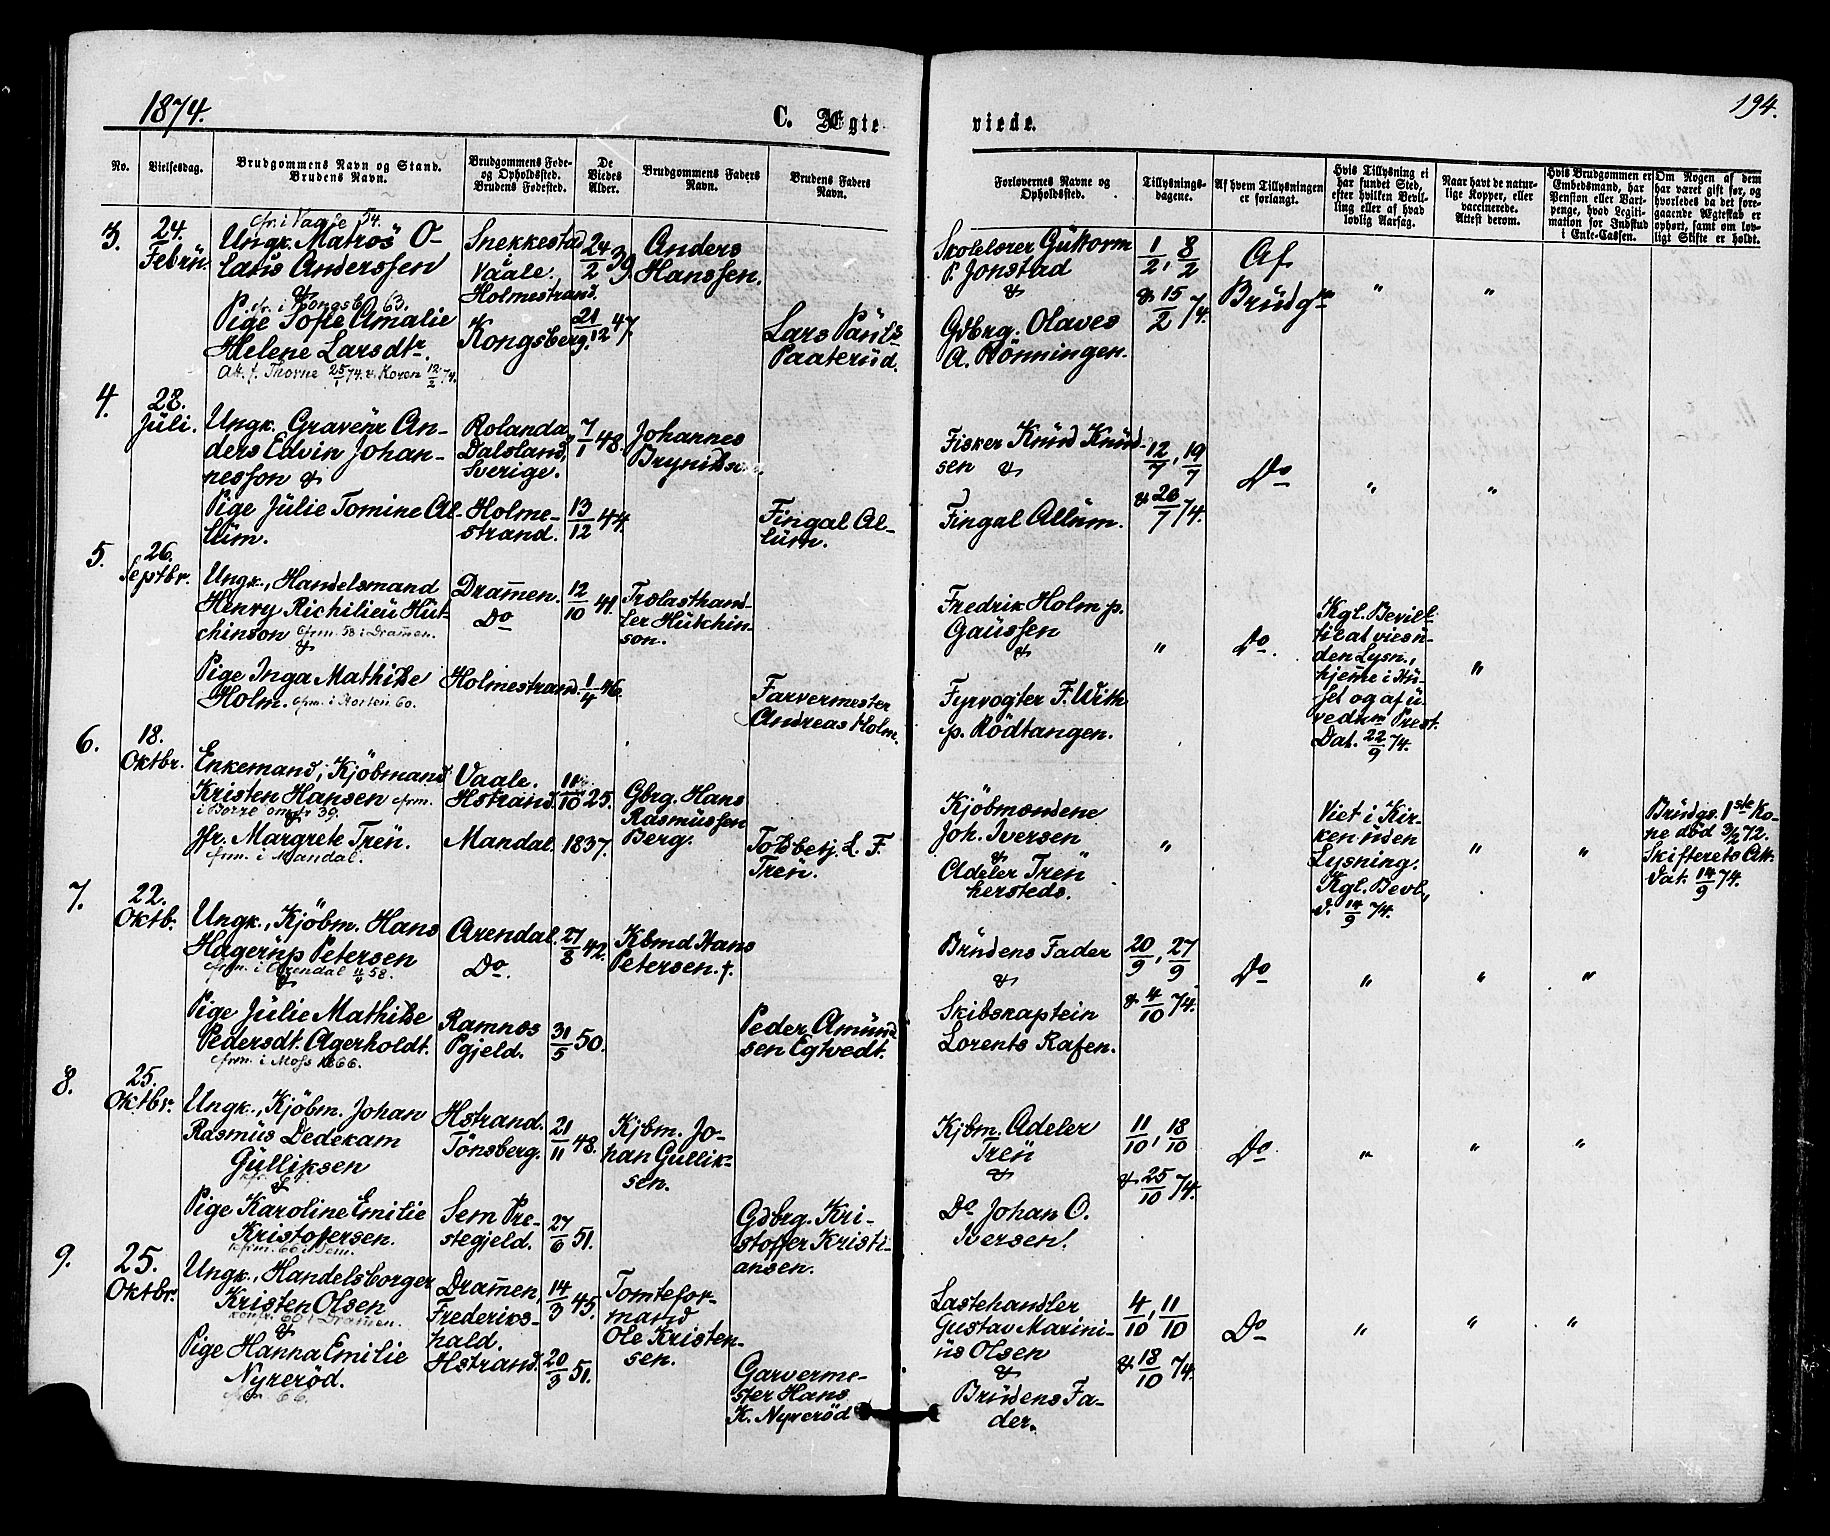 1874.
C. Ægte
viede.
194.
No.
Vielsesdag.
Brudgommens Navn og Stand.
Brudens Navn.
Brudgommens Føde-
og Opholdssted.
Brudens Fødested.
De
Viedes
Alder.
Brudgommens Faders
Navn.
Brudens Faders
Navn.
Forlovernes Navne og
Opholdssted.
Tillysnings-
dagene.
Af hvem Tillysningen
er forlangt.
Hvis Tillysning ei
har fundet Sted,
efter hvilken Bevil-
ling eller af hvad
lovlig Aarsag.
Naar havt de natur-
lige Kopper, eller
vaccinerede.
Attest derom.
Hvis Brudgommen er
Embedsmand, har
Pension eller Vart-
penge, hvad Legiti-
mation for Indskud
i Enke-Cassen.
Om Nogen af dem
har været gift før, og
hvorledes da det fore-
gaaende Ægteskab er
ophørt, samt om lov-
ligt Skifte er holdt.
3.
24.
Febru.
cfr. i Vaale 54.
Ungk. Matros O-
laus Anderssen
&
cfr. i Kongsb. 63.
Pige Sofie Amalie
Helene Larsdtr.
Att. f. Thorne 25/1 74 & Koren 12/2 74.
Snekkestad
Vaale.
Holmestrand.
Kongsberg.
24/2 39
21/12 47.
Anders
Hanssen.
Lars Pauls
Paaterud.
Skolelærer Guttorm
P. Jonstad
&
Gdbrg. Olaves
A. Rönningen.
1/2, 8/2
& 15/2 74.
Af
Brudgm
"
"
4.
28.
Juli.
Ungk. Graveur An-
ders Edvin Johan-
nesson &
Pige Julie Tomine Al-
lum.
Rolanda
Dalsland,
Sverige.
Holme-
strand.
7/1 48.
13/12 44.
Johannes
Fingal Al-
lum.
Fisker Knud Knud-
sen &
Fingal Allum.
12/7, 19/7
& 26/7 74.
Do
"
"
5.
26.
Septbr.
Ungk., Handelsmand
Henry Richilieu Hut-
chinson cfrm. 58 i Dramen.
&
Pige Inga Mathilde
Holm. cfrm. i Horten 60.
Dramen.
Do
Holmestrand
12/10 41.
1/4 46.
Trælasthand-
ler Hutchin-
son.
Farvermester
Andreas Holm.
Fredrik Holm p.
Gaussen
&
Fyrvogter F. With
p. Rödtangen.
"
Do.
Kgl. Bevill.
til at vies u-
den Lysn.,
hjeme i Hu-
set og af u-
vedkm Prest.
Dat. 22/9 74.
"
6.
18.
Oktbr.
Enkemand, Kjöbmand
Kristen Hansen cfrm.
i Borre omtr 39.
Jfr. Margrete Treu.
cfrm. i Mandal.
Vaale.
Hstrand.
Mandal.
11/10 25.
1837.
Gbrg. Hans
Rasmussen
Berg.
Toldbetj. L. F.
Treu.
Kjöbmændene
Joh. Iversen
&
Adeler Treu
hersteds.
"
Viet i Kir-
ken uden
Lysning.
Kgl. Bevl.,
d. 14/9 74.
"
"
Brudgs. 1ste Ko-
ne död 3/2 72.
Skifterets Att.
Dat. 14/9 74.
7.
22.
Oktb.
Ungk., Kjöbm. Hans
Hagerup Petersen
cfrm. i Arendal 58.
&
Pige Julie Mathilde
Pedersdt. Agerholdt.
cfrm. i Moss 1866.
Arendal.
Do.
Ramnæs
Pgjeld.
27/8 42.
31/5 50.
Kbmd Hans
Petersen. †.
Peder Amund-
sen Egtvedt.
Brudens Fader
&
Skibskaptein
Lorents Rafen.
20/9, 27/9
& 4/10 74.
Do
"
"
"
8.
25.
Oktbr.
Ungk., Kjöbm. Johan
Rasmus Dedekam
Gulliksen
&
Pige Karoline Emilie
Kristofersen.
cfrm. 66 i Sem.
Hstrand.
Tönsberg.
Sem Pre-
stegjeld.
21/11 48.
27/6 51.
Kjbm. Jo-
han Gullik-
sen.
Gdbrg. Kri-
stoffer Kristi-
ansen.
Kjbm. Adeler
Treu
&
Do Johan O.
Iversen.
11/10, 18/10
& 25/10 74.
Do
"
"
"
9.
25.
Oktbr.
Ungk., Handelsborger
Kristen Olsen
konfr. 60 i Dramen.
&
Pige Hanna Emilie
Nyreröd.
cfrm. 66.
Dramen,
Frederiks-
hald.
Hstrand.
14/3 45.
20/3 51.
Tomtefor-
mand
Ole Kristen-
sen.
Garverme-
ster Hans
K. Nyreröd
Lastehandler
Gustav Marini-
us Olsen
&
Brudens Fa-
der.
4/10, 11/10
& 18/10 74.
Do
"
"
"